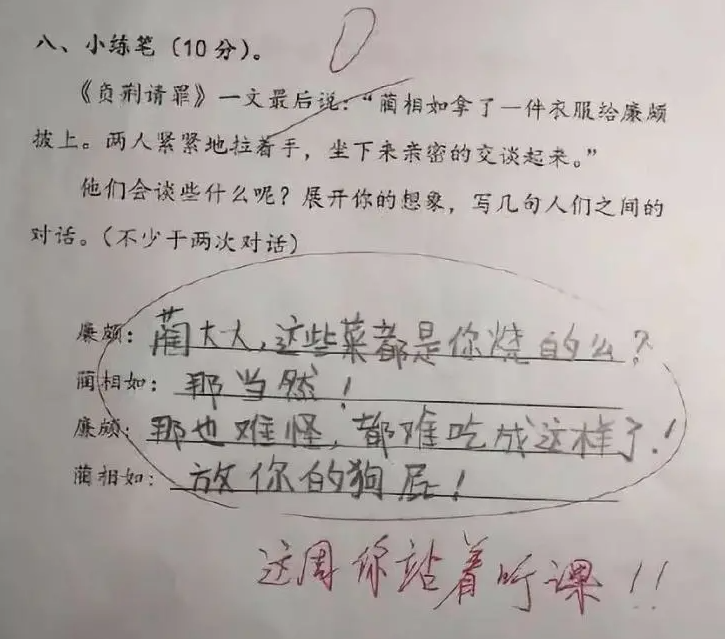 八、小练笔（10分）。
0
《负荆请罪》一文最后说：“蔺相如拿了一件衣服给廉颇
披上。两人紧紧地拉着手，坐下来亲密的交谈起来。”
他们会谈些什么呢？展开你的想象，写几句人们之间的
对话。（不少于两次对话）
廉颇：蔺大人，这些菜都是你烧的么？
蔺相如：那当然！
廉颇：那也难怪，都难吃成这样了！
蔺相如：放你的狗屁！
这周你站着听课！！